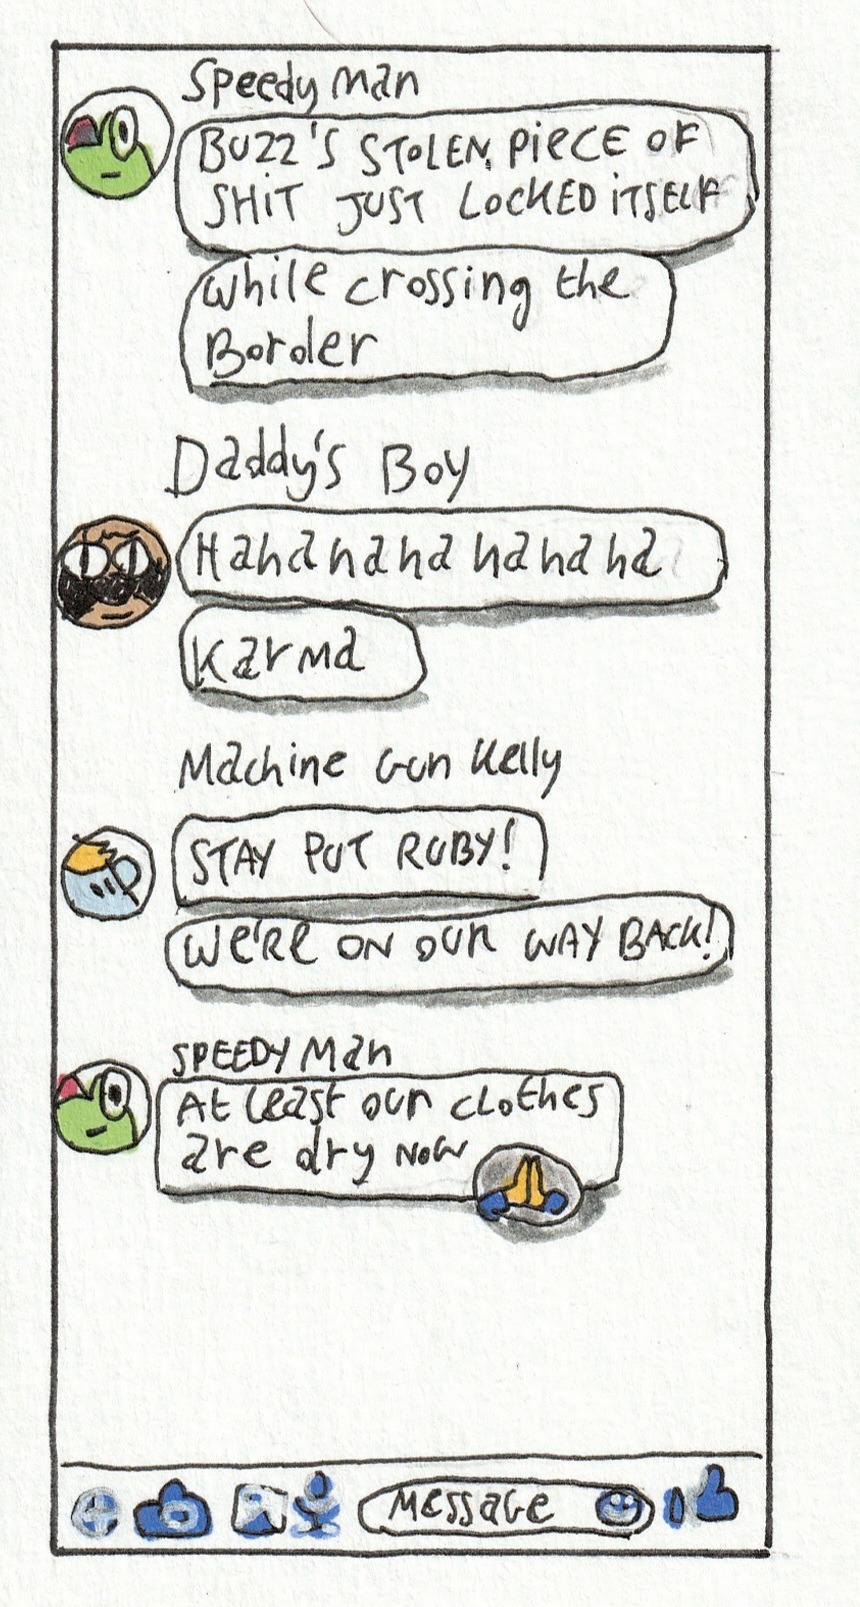 Speedy Man
BUZZ'S STOLEN PIECE OF
SHIT JUST LOCKED ITSELF
while crossing the
Border
Daddy's Boy
Hahahahahahaha
Karma
Machine Gun Kelly
STAY PUT RUBY!
WE'RE ON OUR WAY BACK!
SPEEDY Man
At least our clothes
are dry now
Message